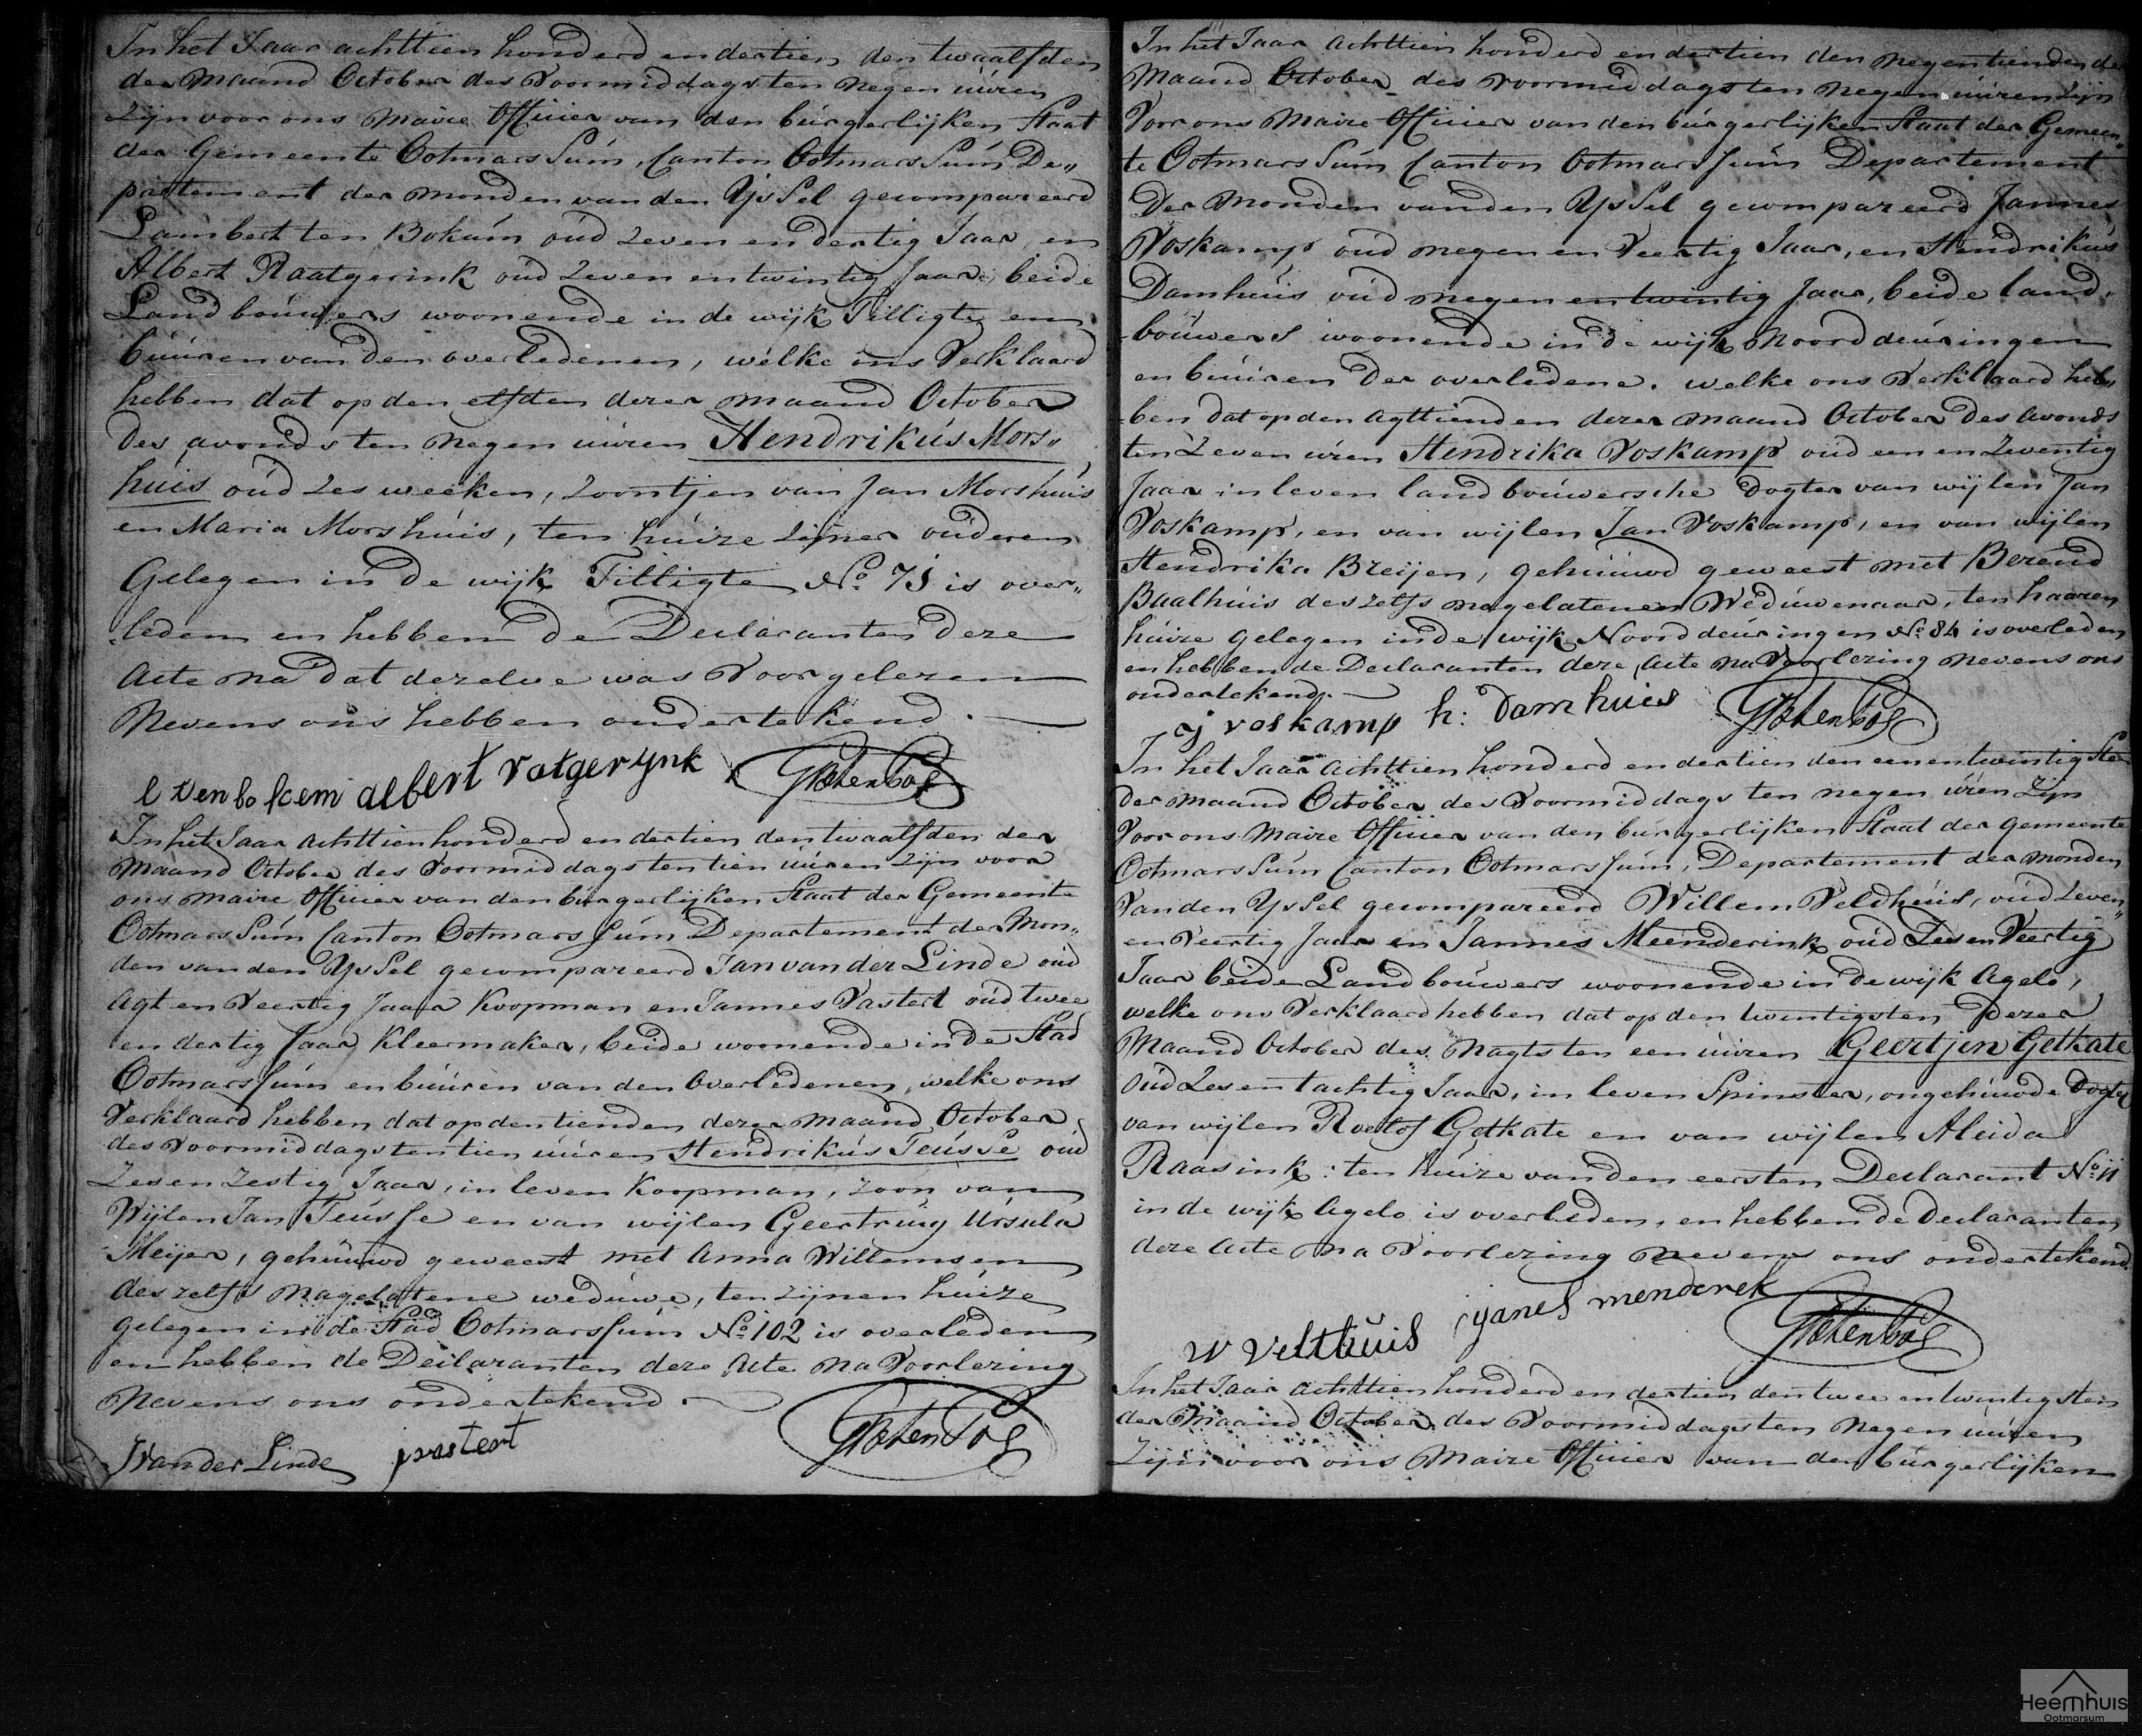 In het Jaar achttien honderd en dertien den twaalfden
der maand October des Voormiddags ten negen uúren
zijn voor ons Maire Officier van den búrgerlijken Staat
der Gemeente Ootmarssúm, Canton Ootmarssúm De„
partement der monden van den Yssel gecompareerd
Lambert ten Bokúm oúd zeven en dertig Jaar, en
Albert Raatgerink oúd zeven en twintig Jaar, beide
Landboúwers woonende in de wijk Tilligte en
búúren van den overledenen, welke ons Verklaard
hebben dat op den elfden dezer maand October
des avonds ten negen uúren Hendrikús Mors„
húis oúd zes weeken, zoontjen van Jan Morshúis
en Maria Morshúis, ten húize zijner oúderen
Gelegen in de wijk Tilligte No. 75 is over„
leden en hebben de Declaranten deze
Acte na dat dezelve was Voorgelezen
Nevens ons hebben ondertekend.
l tenbokem albert ratgerynk GKotenbos
In het Jaar achttien honderd en dertien den twaalfden der
Maand October des Voormiddags ten tien uúren zijn voor
ons Maire Officier van den búrgerlijken Staat der Gemeente
Ootmarssúm Canton Ootmarssúm Departement der Mon„
den van den Yssel gecompareerd Jan van der Linde oúd
Agt en Veertig Jaar Koopman en Jannes Vastert oúd twee
en dertig Jaar Kleermaker, beide woonende in de Stad
Ootmarssúm en búúren van den Overledenen, welke ons
Verklaard hebben dat op den tienden dezer maand October
des Voormiddags ten tien uúren Hendrikús Teússe oúd
Zes en Zestig Jaar, in leven Koopman, zoon van
Wijlen Jan Teússe en van wijlen Geertruig Ursula
Meijer, gehúúwd geweest met Anna Willemsen
deszelfs nagelatene wedúwe, ten zijnen húize
gelegen in de Stad Ootmarssúm No. 102 is overleden
en hebben de Declaranten deze Acte na Voorlezing
Nevens ons ondertekend.
JvanderLinde jvastert GKotenbos
In het Jaar Achttien honderd en dertien den Negentienden der
Maand October des voormiddags ten Negen uúren zijn
Voor ons Maire Officier van den búrgerlijken Staat der Gemeen„
te Ootmarssúm Canton Ootmarssúm Departement
Der Monden van den Yssel gecompareerd Jannes
Voskamp oúd negen en Veertig Jaar, en Hendrikús
Damhúis oúd negen en twintig Jaar, beide land„
boúwers woonende in de wijk Noorddeúringen
en búúren der overledene. welke ons Verklaard heb„
ben dat op den agttienden dezer maand October des Avonds
ten Zeven úren Hendrika Voskamp oúd een en Zeventig
Jaar in leven landboúwersche Dogter van wijlen Jan
Voskamp, en van wijlen Jan Voskamp, en van wijlen
Hendrika Breijen, gehúúwd geweest met Berend
Baalhúis deszelfs nagelatenen Wedúwenaar, ten haaren
húize gelegen in de wijk Noorddeúringen No. 84 is overleden
en hebben de Declaranten deze Acte na Voorlezing nevens ons
ondertekend.
j voskamp h: Damhuies GKotenbos
In het Jaar Achttien honderd en dertien den een en twintigsten
der maand October des Voormiddags ten negen úren zijn
Voor ons Maire Officier van den búrgerlijken Staat der Gemeente
Ootmarssúm Canton Ootmarssúm, Departement der monden
Van den Yssel gecompareerd Willem Veldhúis, oúd Zeven„
en Veertig Jaar en Jannes Meenderink oúd Zes en Veertig
Jaar beide Landboúwers woonende in de wijk Agelo,
welke ons Verklaard hebben dat op den twintigsten dezer
Maand October des Nagts ten een uúren Geertjen Getkate
Oúd Zes en tachtig Jaar, in leven Spinster, ongehúúwde Dogter
van wijlen Roelof Getkate en van wijlen Aleida
Raasink: ten húize van den eersten Declarant No. 11
in de wijk Agelo is overleden, en hebben de Declaranten
deze Acte na Voorlezing nevens ons ondertekend.
W Velthuis janes menderek GKotenbos
In het Jaar achttien honderd en dertien den twee en twintigsten
der Maand October des Voormiddags ten Negen uúren
Zijn voor ons Maire Officier van den búrgerlijken
Heemhuis
Ootmarsum